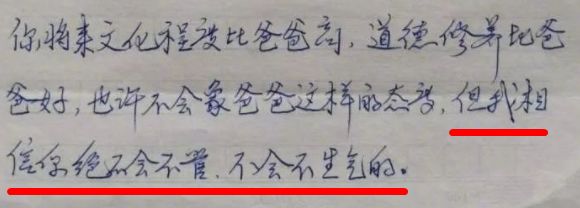 你将来文化程度比爸爸高，道德修养比爸
爸好，也许不会象爸爸这样的态度，但我相
信你绝不会不管，不会不生气的。